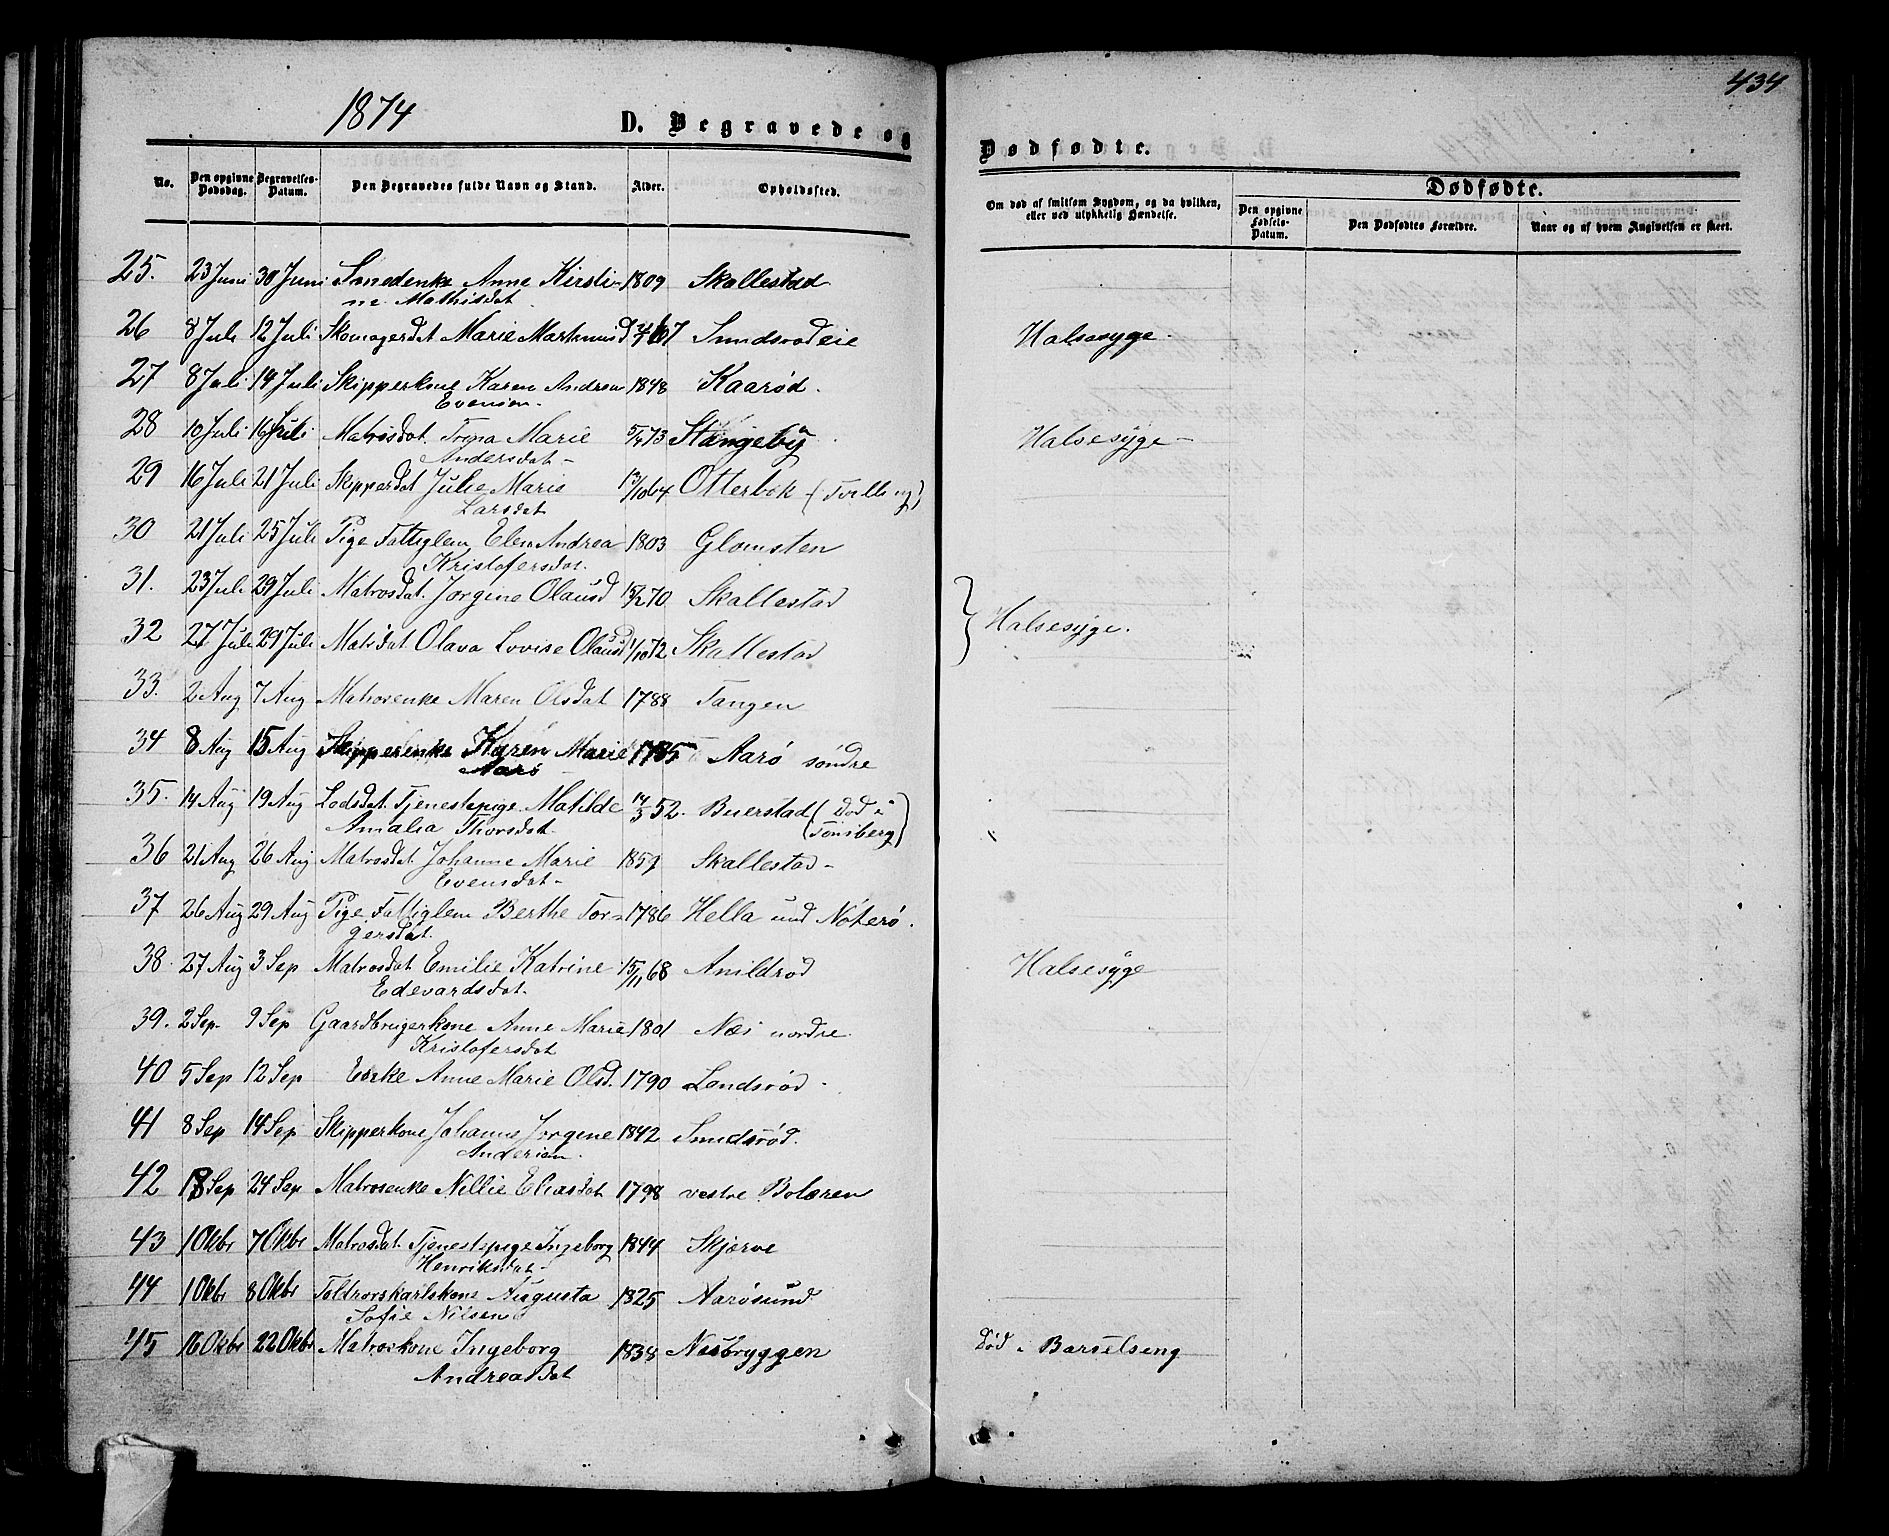 434
1874
D. Begravede og
Dødfødte.
No.
Den opgivne Dødsdag.
Begravelses-Datum.
Den Begravedes fulde Navn og Stand.
Alder.
Opholdssted.
Om død af smitsom Sygdom, og da hvilken, eller ved ulykkelig Hændelse.
Dødfødte.
Den opgivne Fødsels-Datum.
Den Dødfødtes Forældre.
Naar og af hvem Angivelsen er skeet.
25. 23 Juni 30 Juni Anne Kirsti- 1809 Skallestad
ne Mathisdat.
26 8 Juli 12 Juli Skomagerdat Marie Smidsrød eie Halsesyge.
27 8 Juli 14 Juli Skipperkone Karen Andrea 1848 Kaarød.
Evensen.
28 10 Juli 16 Juli Matrosdat. Marie 5/4 73 Stangeby Halsesyge
Andersdat
29 16 Juli 21 Juli Skipperdat Julie Marie 13/10 64 Otterbek (Tvilling)
Larsdat
30 21 Juli 25 Juli Pige Fattiglem Elen Andrea 1803 Glomsten
Kristofersdat.
31. 23 Juli 29 Juli Matrosdat. Jørgine Olausd 15/2 70 Skallestad
Halsesyge.
32 27 Juli 29 Juli Matrsdat Olava Lovise Olausd 1/10 72 Skallestad
33. 2 Aug 7 Aug Matrosenke Maren Olsdat 1788 Tangen
34 8 Aug 15 Aug Skipperenke Karen Marie Aarø søndre
Aarø
35. 14 Aug 19 Aug Lodsdat. Tjenestepige Matilde 14/3 52. Buerstad (Død i
Amalia Thorsdat. Tønsberg)
36 21 Aug 26 Aug Matrosdat Johanne Marie Skallestad
Evensdat
37 26 Aug 29 Aug Pige Fattiglem Berthe Tor- 1786 Hella und Nøterø.
gersdat.
38. 27 Aug 3 Sep Matrosdat Emilie Katrine 15/11 68 Anildrød Halsesyge
Edevardsdat.
39. 2 Sep. 9 Sep Gaardbrugerkone Anne Marie 1801 Nes nordre.
Kristofersdat
40 5 Sep 12 Sep Enke Anne Marie Olsd. 1790
41 8 Sep 14 Sep Skipperkone Johanne Jørgine 1842 Smidsrød.
Andersen.
42 18 Sep 24 Sep Matrosenke Nillie Eliasdat 1798 vestre Bolæren
43 1 Okbr 7 Okbr Matrosdat. Tjenestepige Ingeborg 1844 Skjerve
Henriksdat
44 1 Okbr 8 Okbr Augusta 1825 Aarøsund
Sofie Nilsen
45 16 Okbr 22 Okbr Matroskone Ingeborg 1838 Nesbryggen Død i Barselseng
Andreasdat